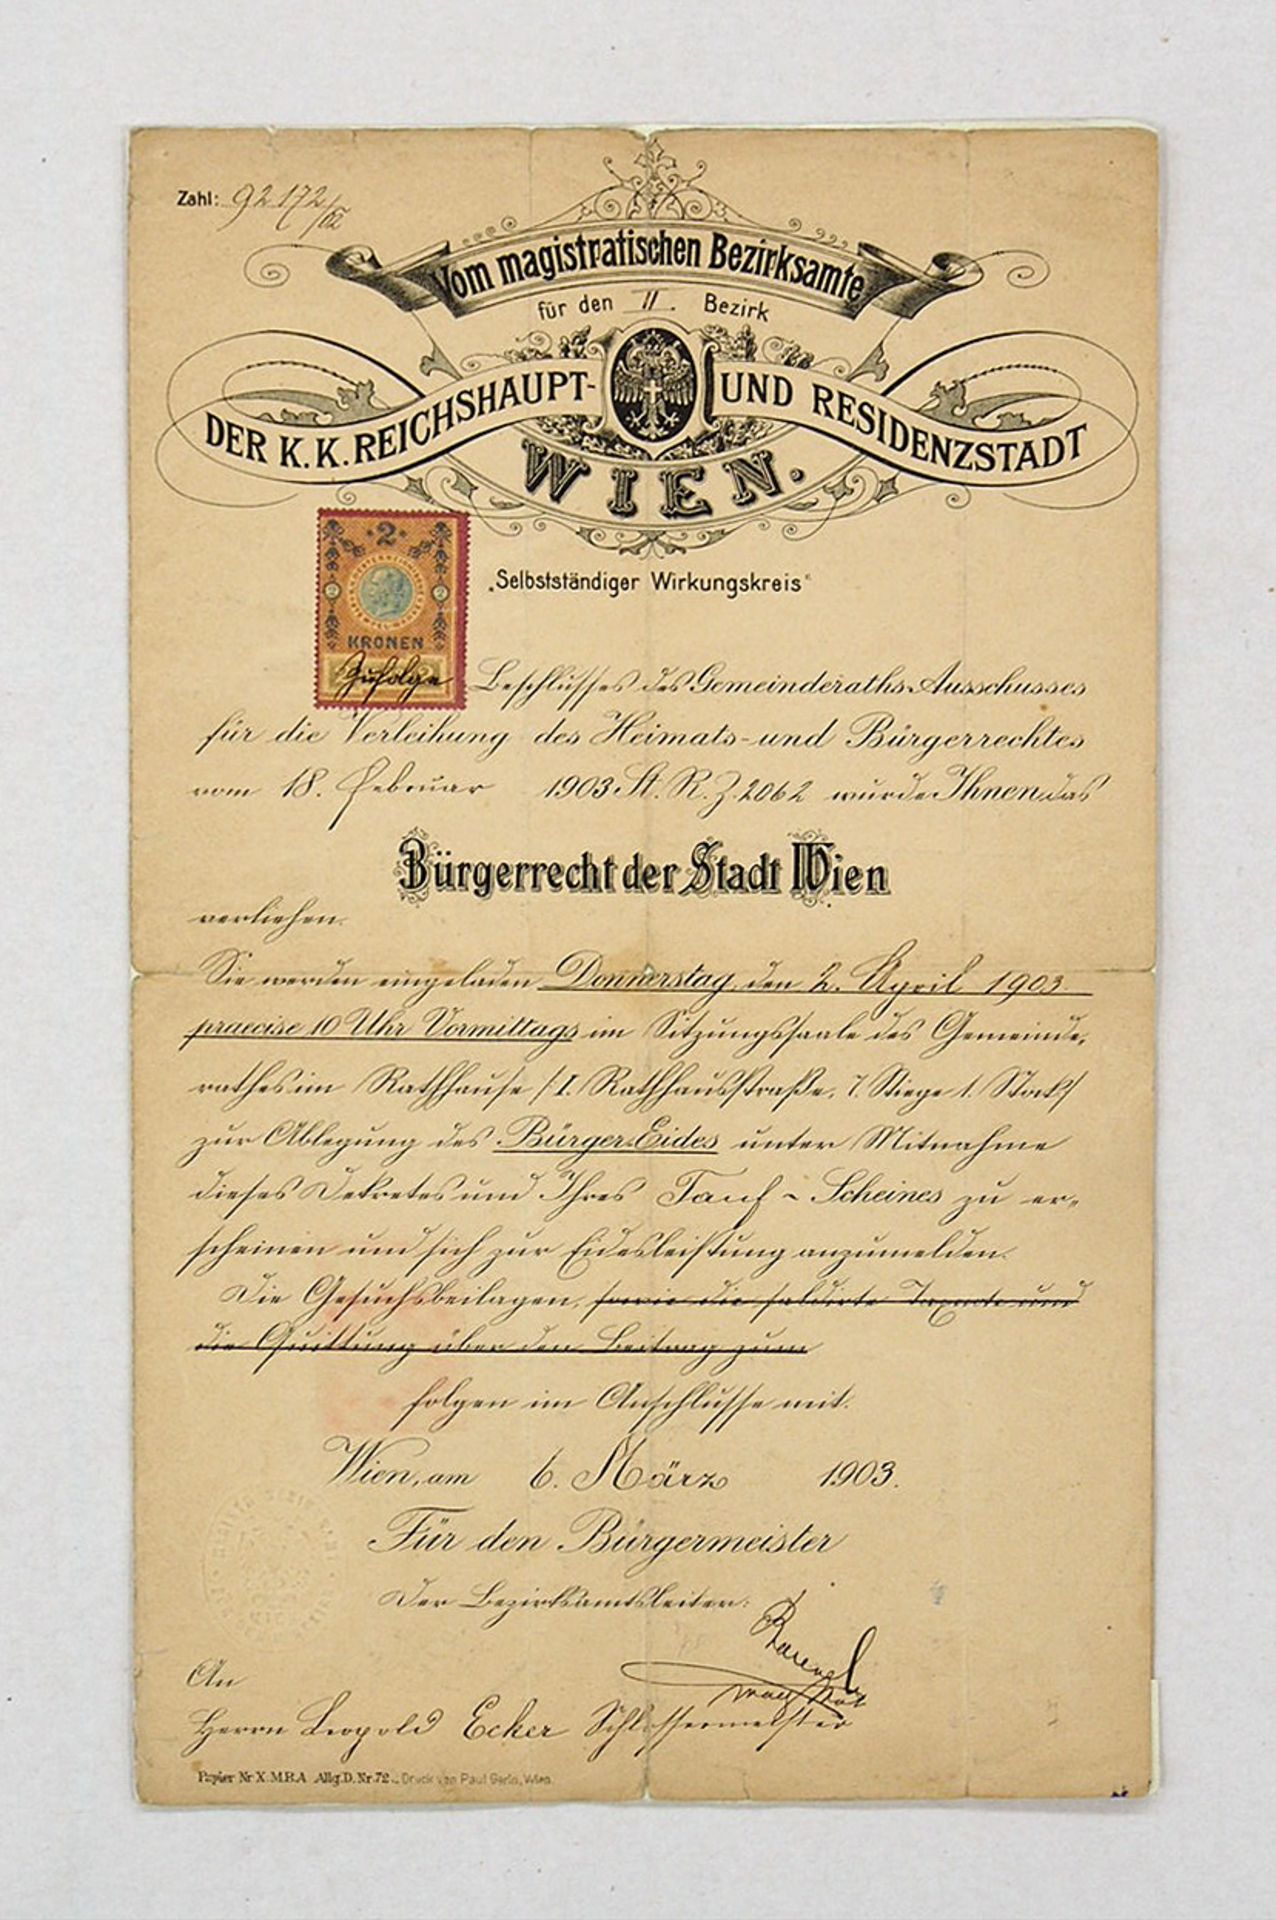 Zahl: 92172/02
Vom magistratischen Bezirksamte
für den II. Bezirk
DER K. K. REICHSHAUPT- UND RESIDENZSTADT
WIEN.
2
KRONEN
„Selbstständiger Wirkungskreis“
Zufolge Beschlusses des Gemeinderaths-Ausschusses
für die Verleihung des Heimats- und Bürgerrechtes
vom 18. Februar 1903 St. R. Z. 2062 wurde Ihnen das
Bürgerrecht der Stadt Wien
verliehen.
Sie werden eingeladen Donnerstag, den 2. April 1903
praecise 10 Uhr Vormittags im Sitzungssaale des Gemeinde-
rathes im Rathhause /I. Rathhausstraße, 7. Stiege 1. Stock/
zur Ablegung des Bürger-Eides unter Mitnahme
dieses Dekretes und Ihres Tauf-Scheines zu er-
scheinen und sich zur Eidesleistung anzumelden.
Die Gesuchsbeilagen, sowie die saldirte Taxnote und
die Quittung über den Beitrag zum
folgen im Anschlusse mit.
Wien, am 6. März 1903.
Für den Bürgermeister
Der Bezirksamtsleiter:
An
Herrn Leopold Ecker Schlossermeister
Papier Nr X. M.B.A. Allg. D. Nr. 72. Druck von Paul Gerin, Wien.